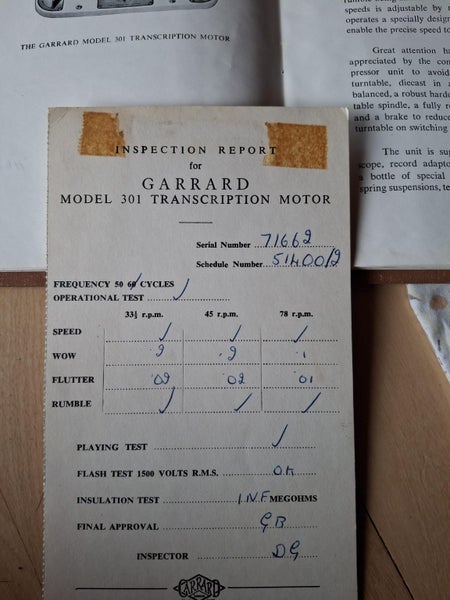 THE GARRARD MODEL 301 TRANSCRIPTION MOTOR
speeds is adjustable by m
operates a specially design
enable the precise speed to
Great attention ha
appreciated by the con
pressor unit to avoid
turntable, diecast in a
balanced, a robust hard
table spindle, a fully r
and a brake to reduce
turntable on switching
The unit is sup
scope, record adapto
a bottle of special
spring suspensions, te
INSPECTION REPORT
for
GARRARD
MODEL 301 TRANSCRIPTION MOTOR
Serial Number 71662
Schedule Number 51400/2
FREQUENCY 50 60 CYCLES
OPERATIONAL TEST ✓
33⅓ r.p.m. 45 r.p.m. 78 r.p.m.
SPEED ✓ ✓ ✓
WOW .2 .2 .1
FLUTTER .02 .02 .01
RUMBLE ✓ ✓ ✓
PLAYING TEST ✓
FLASH TEST 1500 VOLTS R.M.S. OK
INSULATION TEST INF MEGOHMS
FINAL APPROVAL GB
INSPECTOR DG
GARRARD